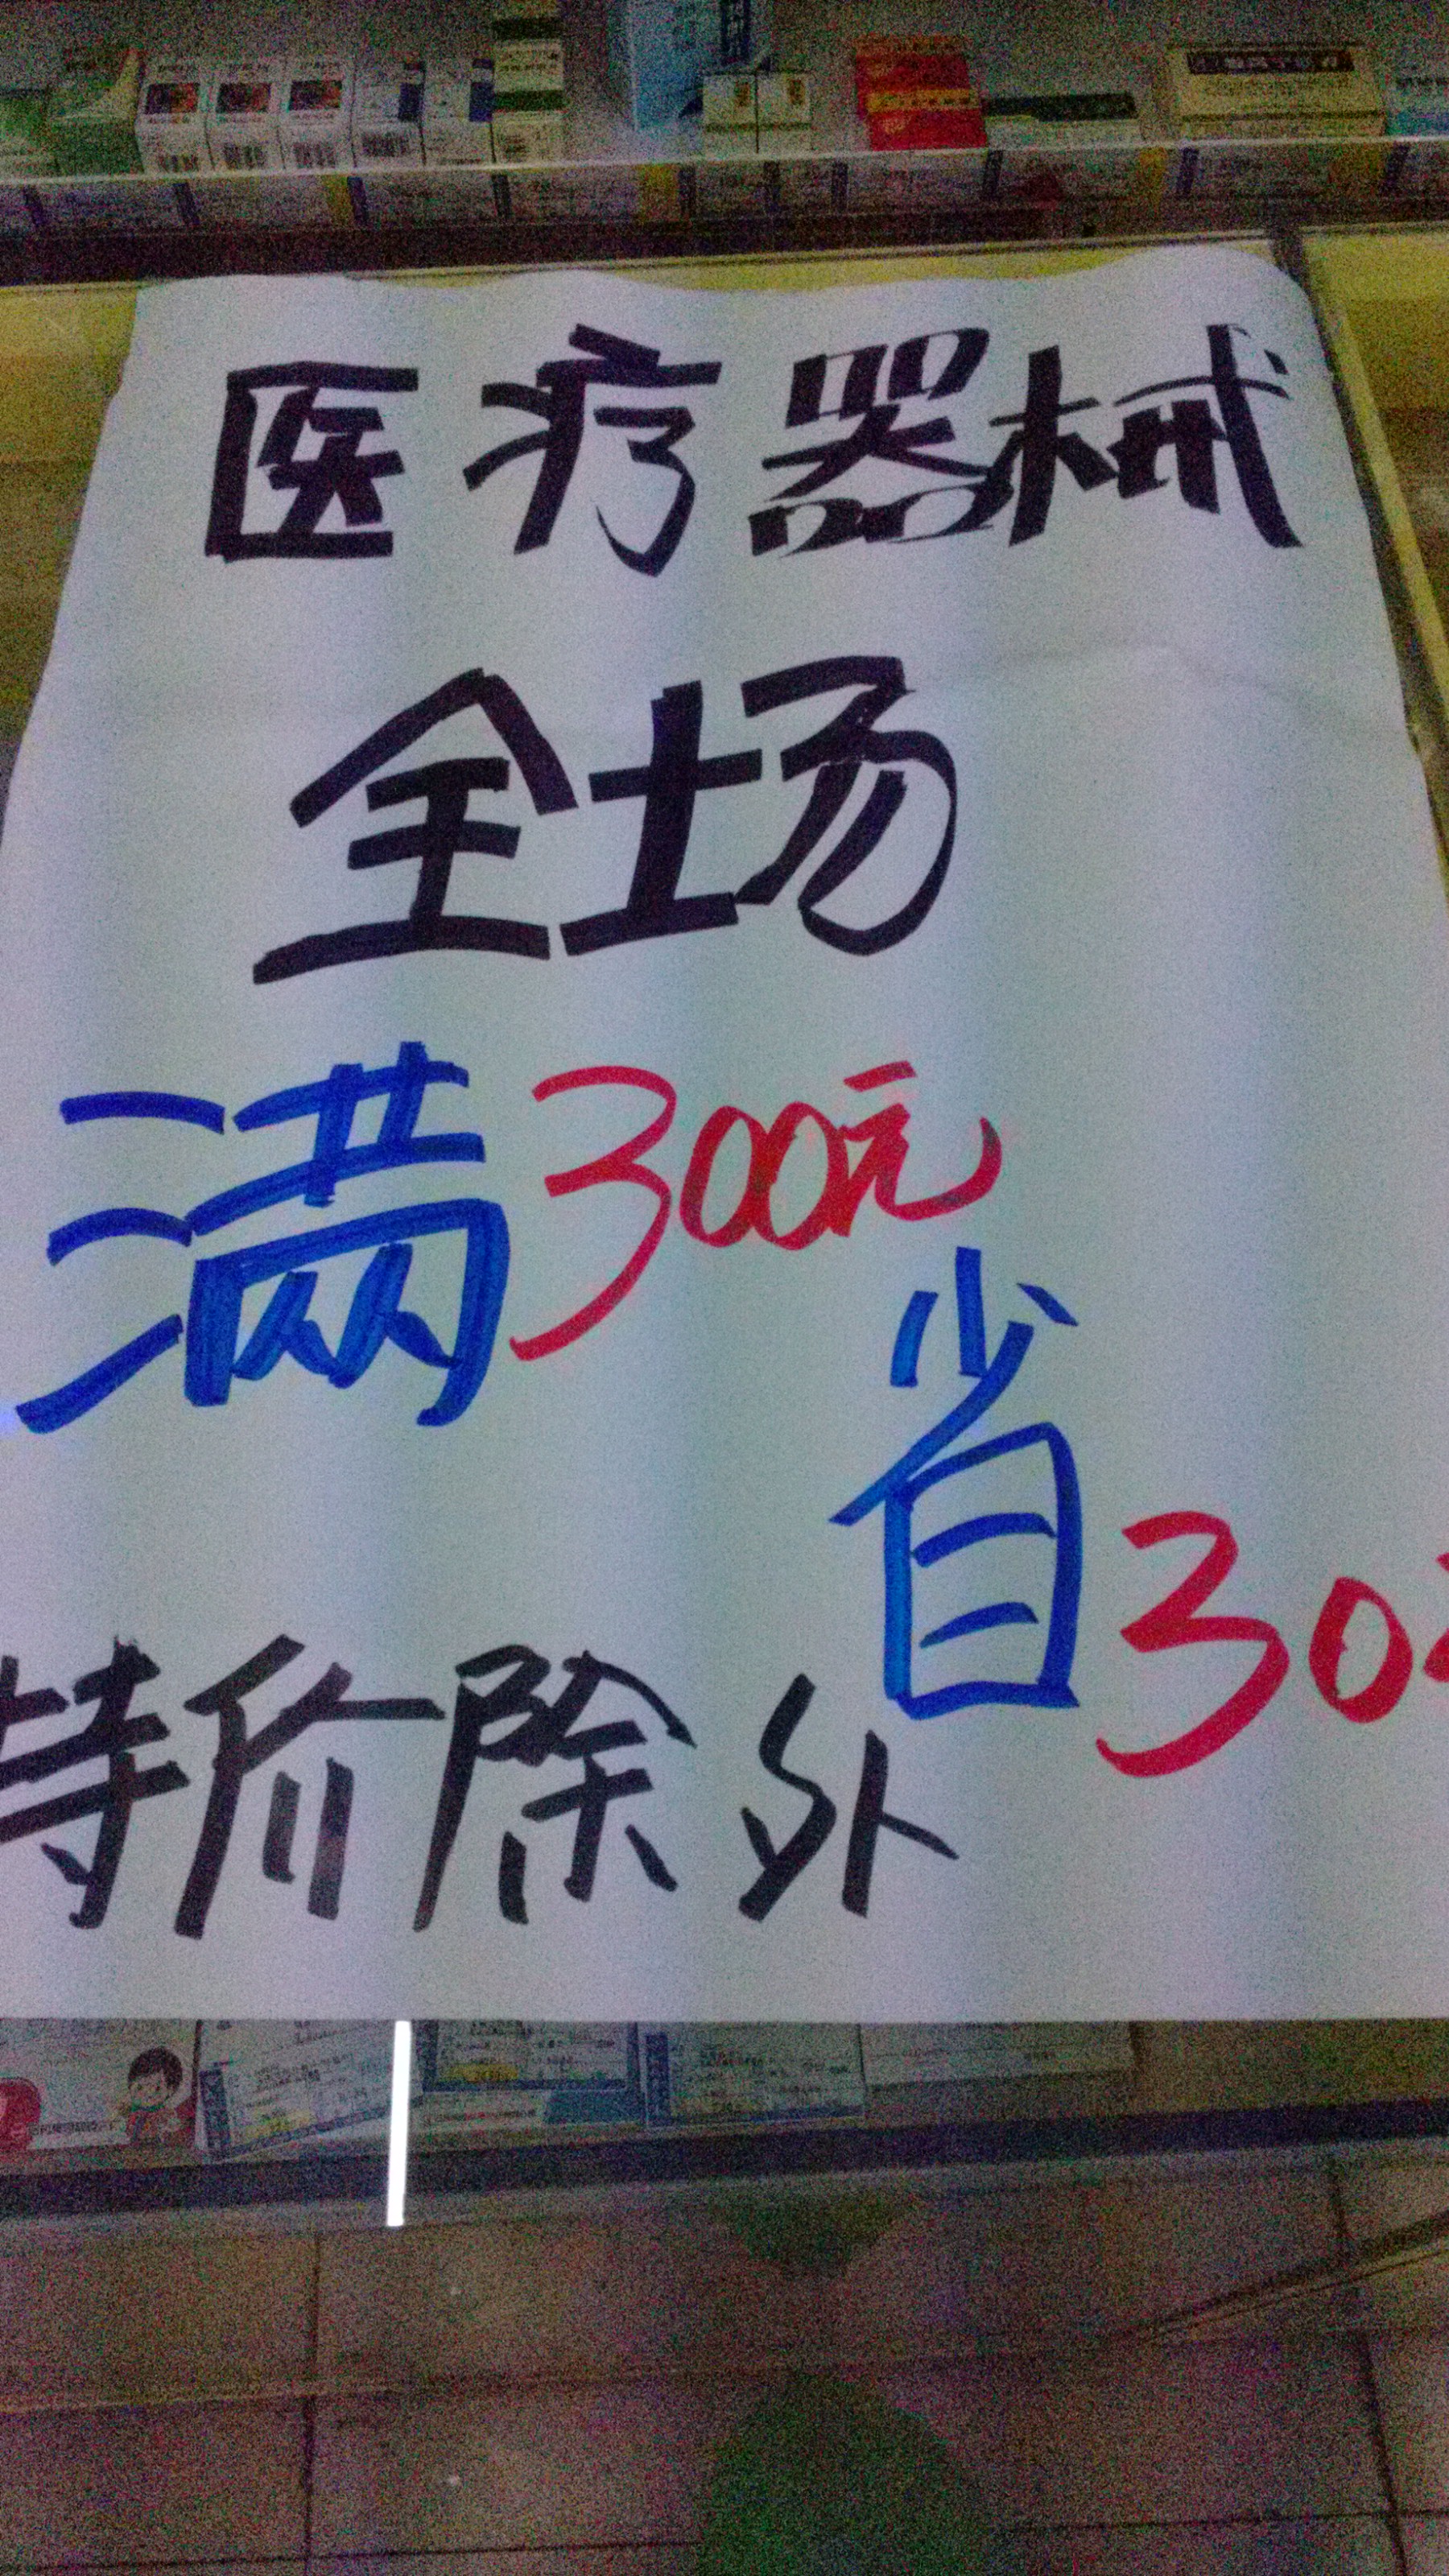 医疗器械
全场
满300元
省30
特价除外